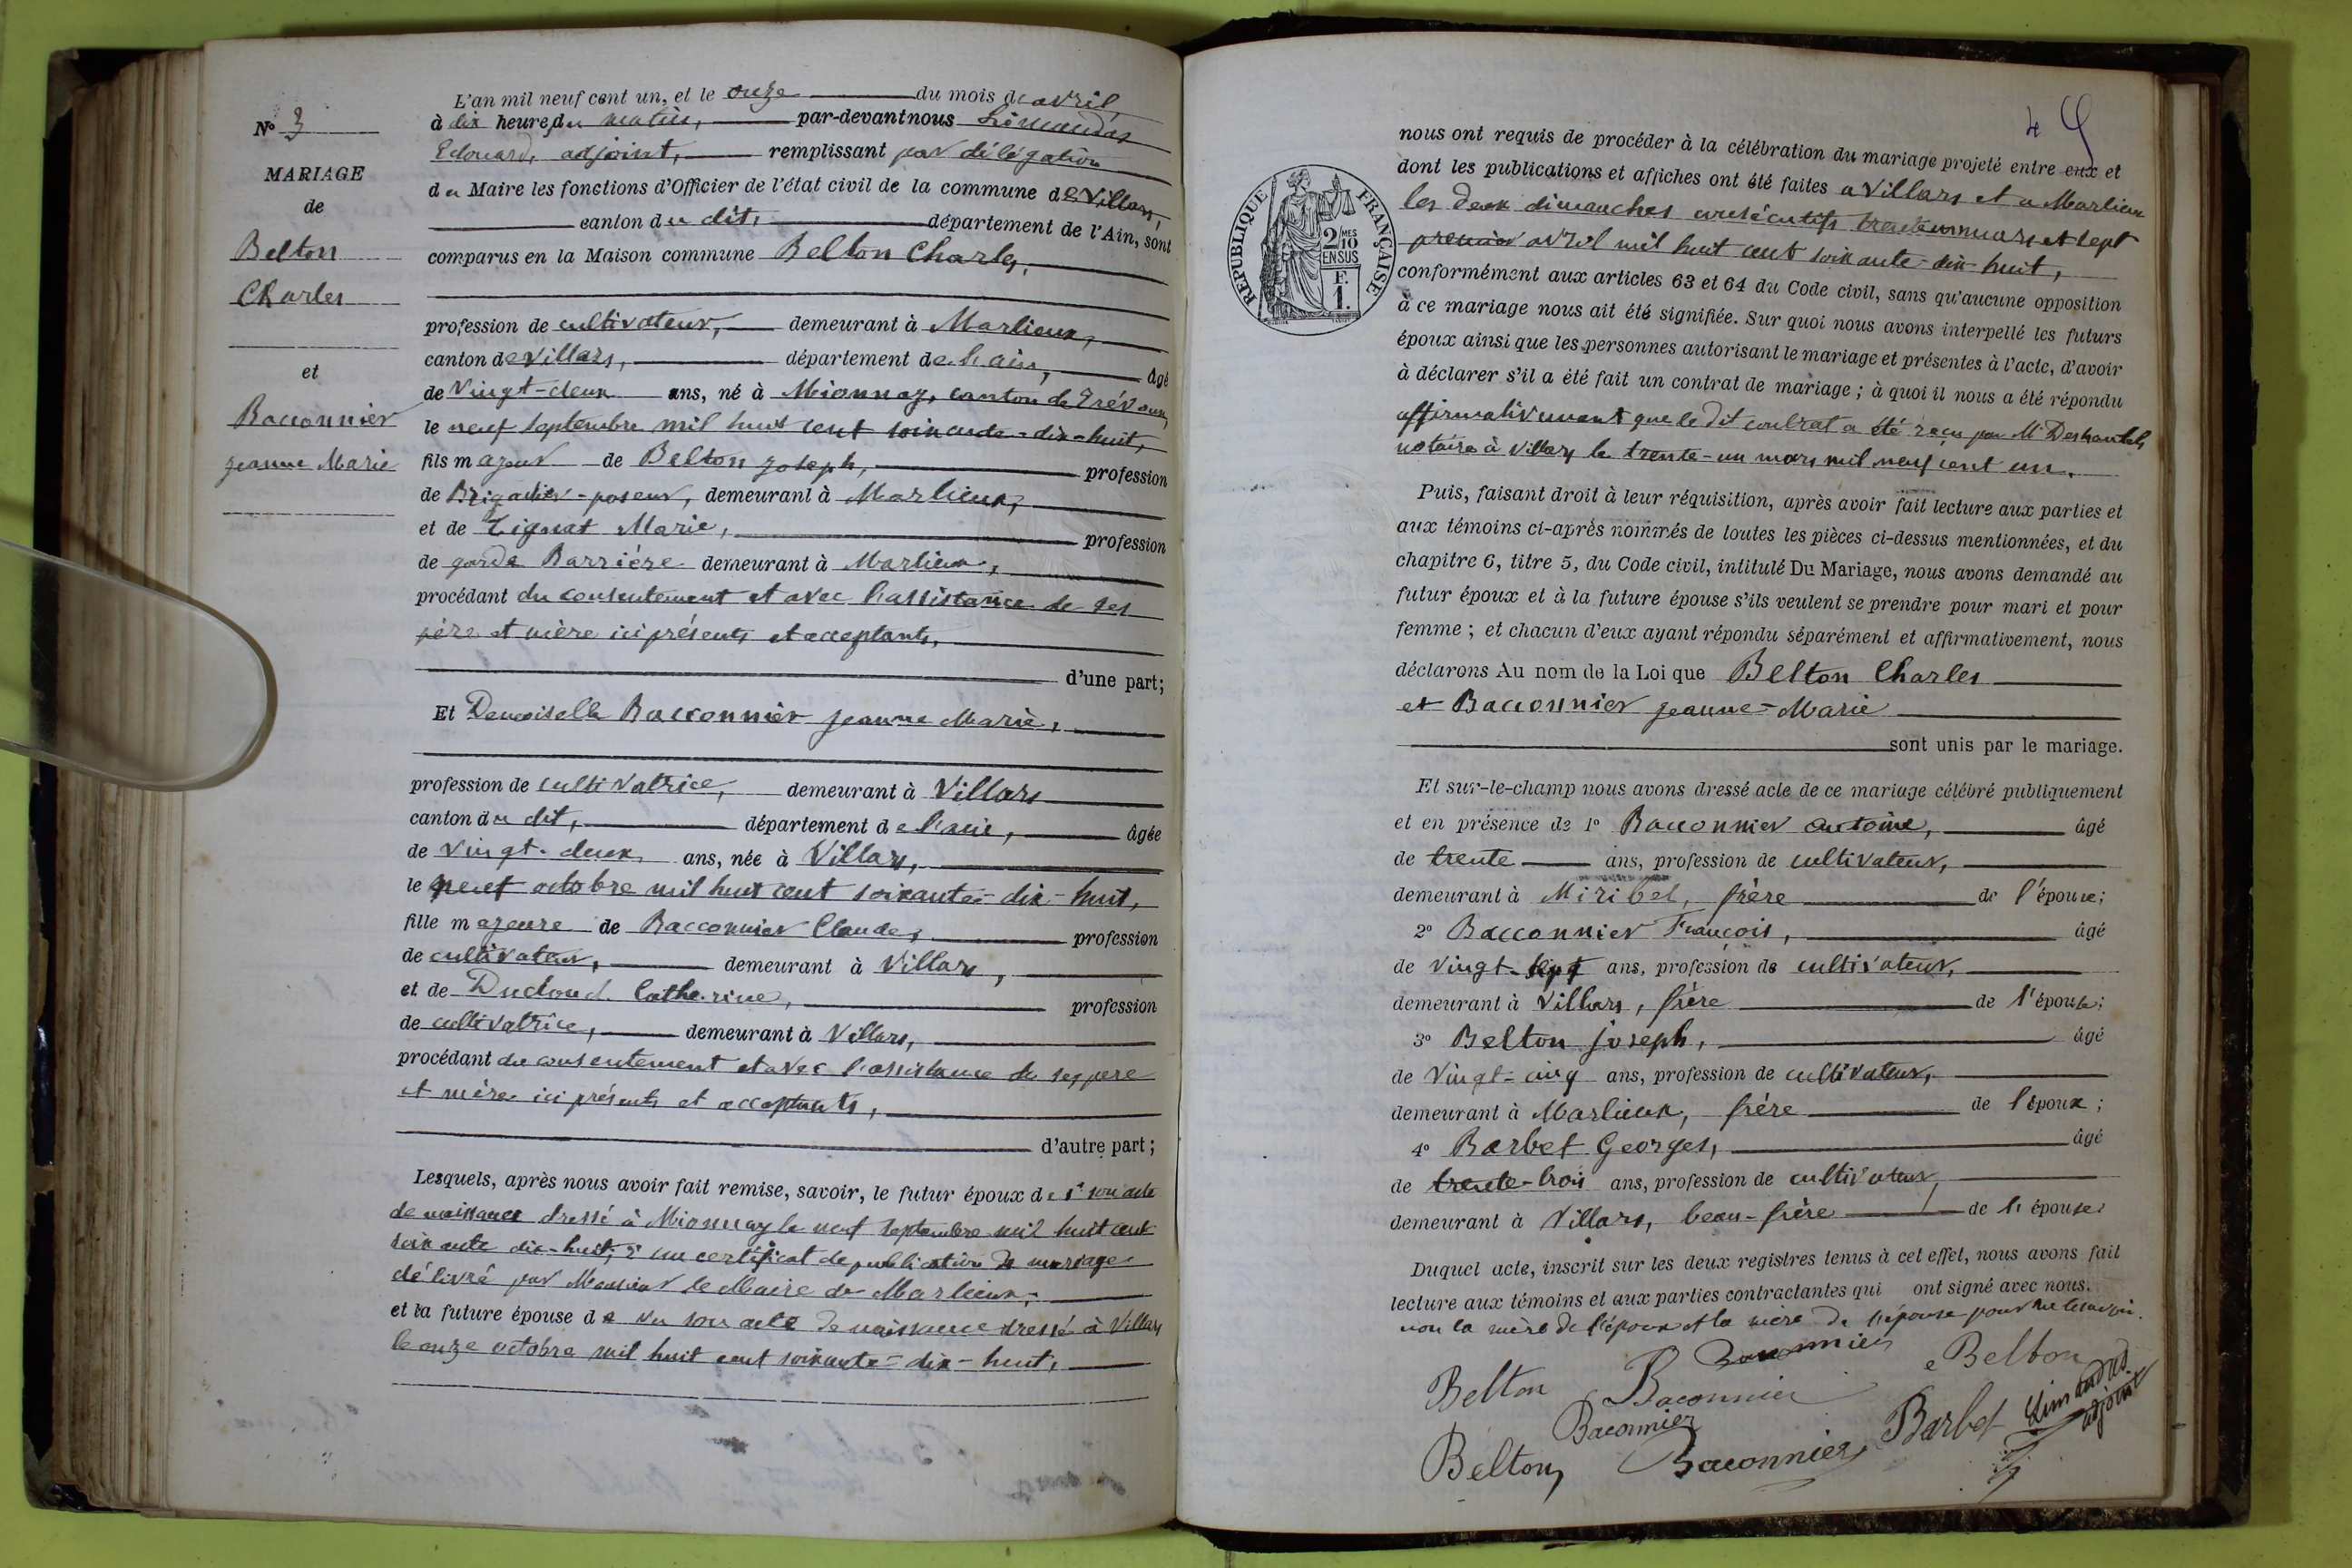 N° 3
MARIAGE
de
Belton
Charles
et
Bacconnier
Jeanne Marie
L'an mil neuf cent un, et le onze du mois de avril
à dix heures du matin, par-devant nous Limandas
Edouard, adjoint, remplissant par délégation
du Maire les fonctions d'Officier de l'état civil de la commune de Villars,
canton du dit, département de l'Ain, sont
comparus en la Maison commune Belton Charles,
profession de cultivateur, demeurant à Marlieux,
canton de Villars, département de l'ain, âgé
de Vingt-deux ans, né à Mionnay, canton de Trévoux,
le neuf septembre mil huit cent soixante-dix-huit,
fils majeur de Belton Joseph, profession
de Brigadier-poseur, demeurant à Marlieux,
et de Tignat Marie, profession
de garde Barrière demeurant à Marlieux,
procédant du consentement et avec l'assistance de ses
père et mère ici présents et acceptants,
d'une part;
Et Demoiselle Bacconnier Jeanne Marie,
profession de cultivatrice, demeurant à Villars
canton du dit, département de l'ain, âgée
de vingt-deux ans, née à Villars,
le neuf octobre mil huit cent soixante-dix-huit,
fille majeure de Bacconnier Claude, profession
de cultivateur, demeurant à Villars,
et de Ducloud Catherine, profession
de cultivatrice, demeurant à Villars,
procédant du consentement et avec l'assistance de ses père
et mère ici présents et acceptants,
d'autre part;
Lesquels, après nous avoir fait remise, savoir, le futur époux de 1° son acte
de naissance dressé à Mionnay le neuf septembre mil huit cent
soixante dix-huit; 2° un certificat de publication de mariage
délivré par Monsieur le Maire de Marlieux;
et la future épouse de vu son acte de naissance dressé à Villars
le onze octobre mil huit cent soixante-dix-huit,
4
nous ont requis de procéder à la célébration du mariage projeté entre eux et
dont les publications et affiches ont été faites a Villars et a Marlieux
les deux dimanches consécutifs trente un mars et sept
premier avril mil huit cent soixante-dix-huit,
RÉPUBLIQUE FRANÇAISE
2/10 MES
EN SUS
F.
1.
conformément aux articles 63 et 64 du Code civil, sans qu'aucune opposition
à ce mariage nous ait été signifiée. Sur quoi nous avons interpellé les futurs
époux ainsi que les personnes autorisant le mariage et présentes à l'acte, d'avoir
à déclarer s'il a été fait un contrat de mariage; à quoi il nous a été répondu
affirmativement que le dit contrat a été reçu par Me
notaire à Villars le trente-un mars mil neuf cent un.
Puis, faisant droit à leur réquisition, après avoir fait lecture aux parties et
aux témoins ci-après nommés de toutes les pièces ci-dessus mentionnées, et du
chapitre 6, titre 5, du Code civil, intitulé Du Mariage, nous avons demandé au
futur époux et à la future épouse s'ils veulent se prendre pour mari et pour
femme; et chacun d'eux ayant répondu séparément et affirmativement, nous
déclarons Au nom de la Loi que Belton Charles
et Bacconnier Jeanne-Marie
sont unis par le mariage.
Et sur-le-champ nous avons dressé acte de ce mariage célébré publiquement
et en présence de 1° Bacconnier Antoine, âgé
de trente ans, profession de cultivateur,
demeurant à Miribel, frère de l'épouse;
2° Bacconnier François, âgé
de vingt-sept ans, profession de cultivateur,
demeurant à Villars, frère de l'épouse;
3° Belton Joseph, âgé
de Vingt-cinq ans, profession de cultivateur,
demeurant à Marlieux, frère de l'époux;
4° Barbet Georges, âgé
de trente-trois ans, profession de cultivateur,
demeurant à Villars, beau-frère de l'épouse
Duquel acte, inscrit sur les deux registres tenus à cet effet, nous avons fait
lecture aux témoins et aux parties contractantes qui ont signé avec nous.
non la mère de l'époux et la mère de l'épouse pour ne le savoir.
Belton Baconnier Bacconnier Belton
Baconnier
Belton Baconnier Barbet Limandas
adjoint